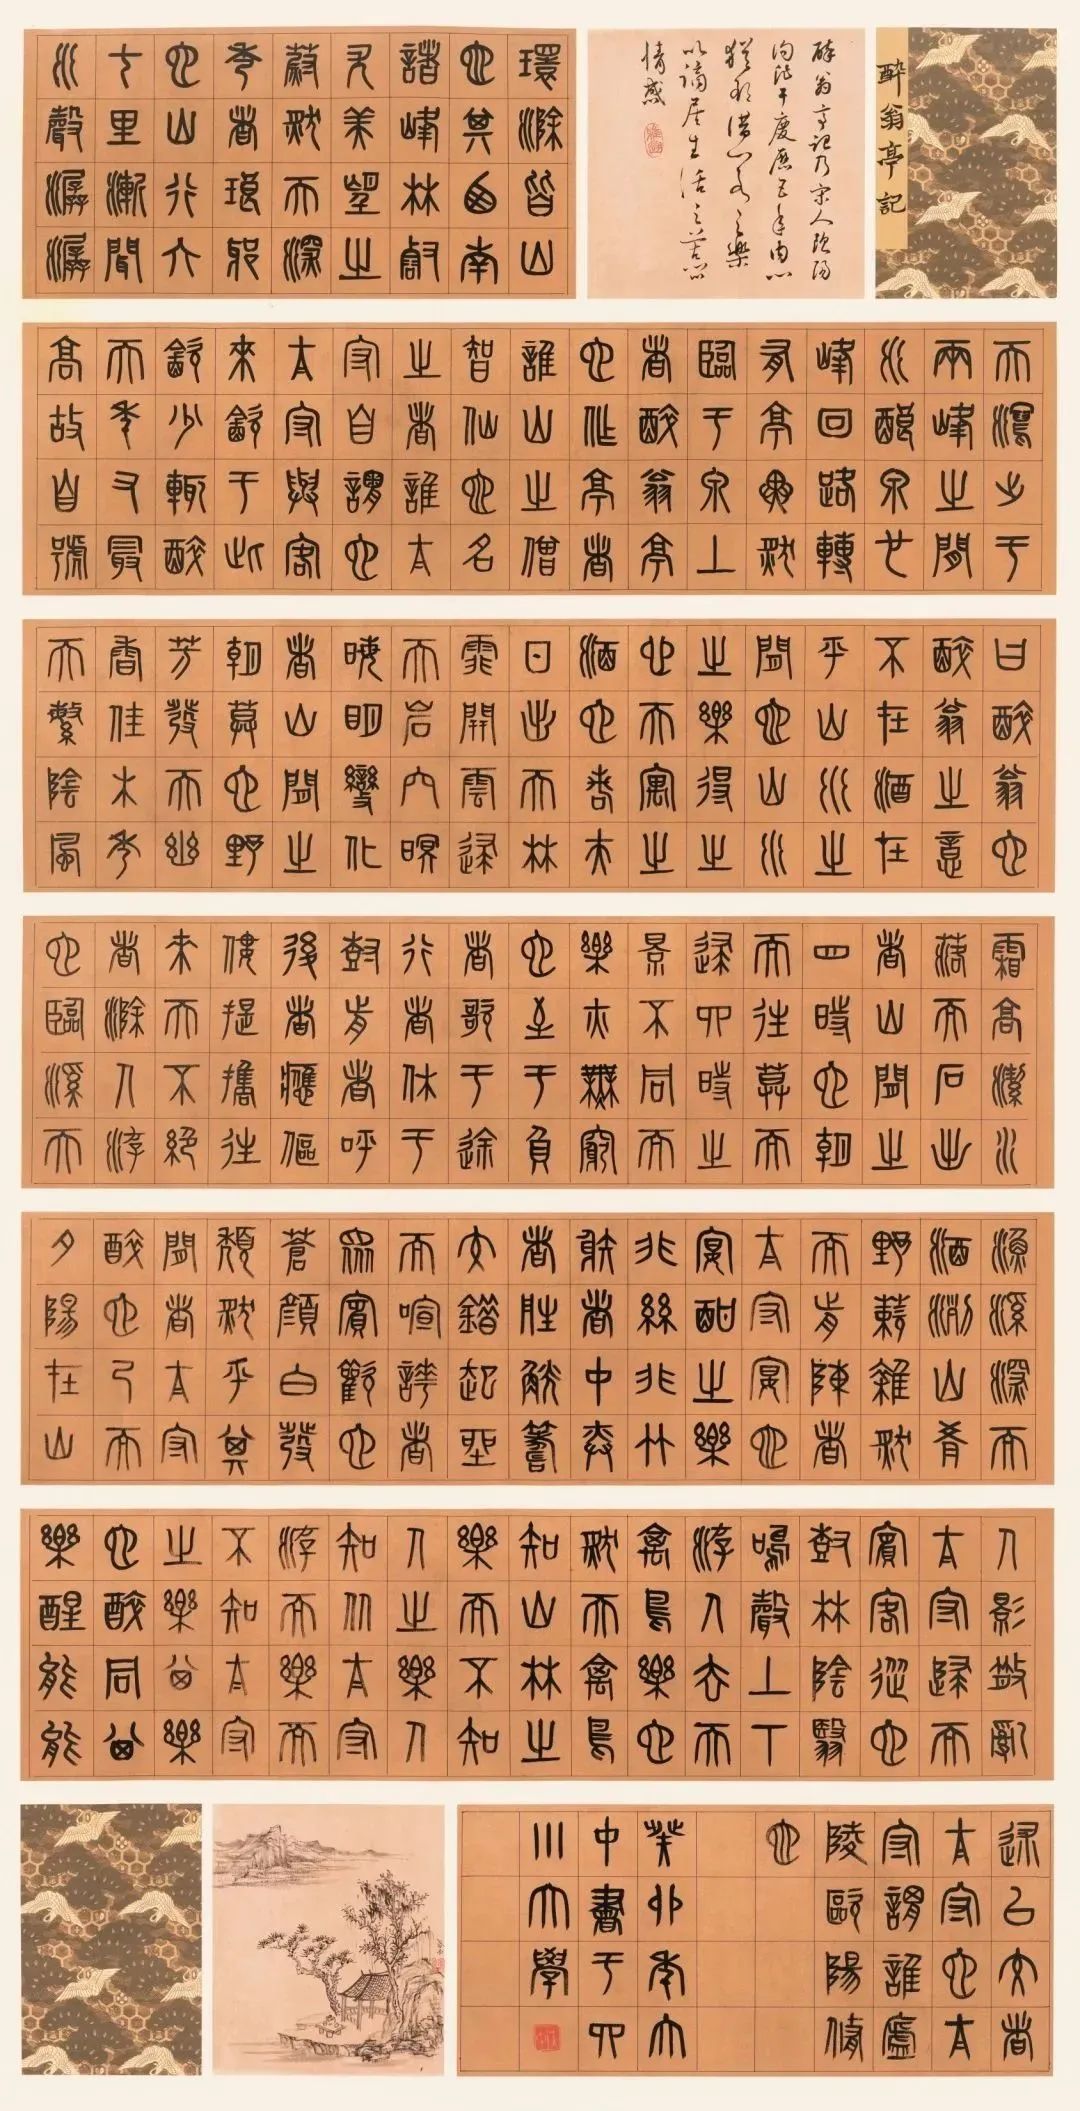 醉翁亭記
環滁皆山
也其西南
諸峰林壑
尤美望之
蔚然而深
秀者琅琊
也山行六
七里漸聞
水聲潺潺
而瀉出于
兩峰之間
水釀泉也
峰回路轉
有亭翼然
臨于泉上
者醉翁亭
也作亭者
誰山之僧
智仙也名
之者誰太
守自謂也
太守與客
來飲于此
飲少輒醉
而年又最
高故自號
曰醉翁也
醉翁之意
不在酒在
乎山水之
間也山水
之樂得之
心而寓之
酒也若夫
日出而林
霏開雲歸
而岩穴暝
晦明變化
者山間之
朝暮也野
芳發而幽
香佳木秀
而繁陰風
霜高潔水
落而石出
者山間之
四時也朝
而往暮而
歸四時之
景不同而
樂亦無窮
也至于負
者歌于途
行者休于
樹前者呼
後者應傴
僂提攜往
來而不絕
者滁人游
也臨溪而
漁溪深而
酒洌山肴
野蔌雜然
而前陳者
太守宴也
宴酣之樂
非絲非竹
射者中弈
者勝觥籌
交錯起坐
而喧嘩者
眾賓歡也
蒼顏白發
頹然乎其
間者太守
醉也已而
夕陽在山
人影散亂
太守歸而
賓客從也
樹林陰翳
鳴聲上下
游人去而
禽鳥樂也
然而禽鳥
知山林之
樂而不知
人之樂人
知從太守
游而樂而
不知太守
之樂其樂
也醉同其
樂醒能能
述以文者
太守也太
守謂誰廬
陵歐陽修
也
癸卯年
中書于四
川大學